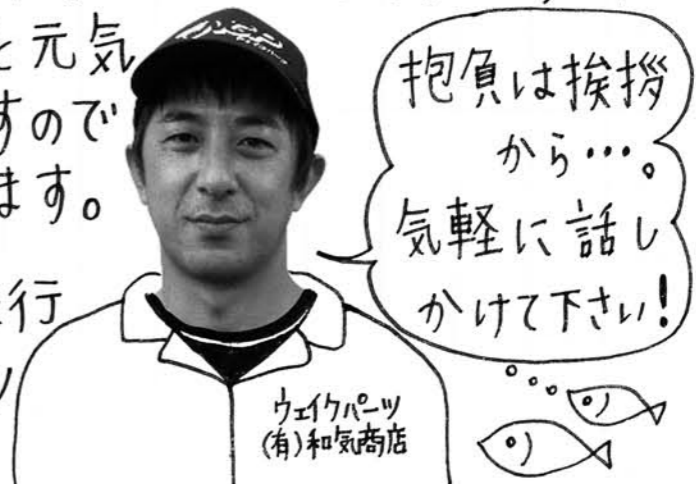 と元気
すので
ます。
行
抱負は挨拶
から…。
気軽に話し
かけて下さい!
ウェイクパーツ
(有)和気商店